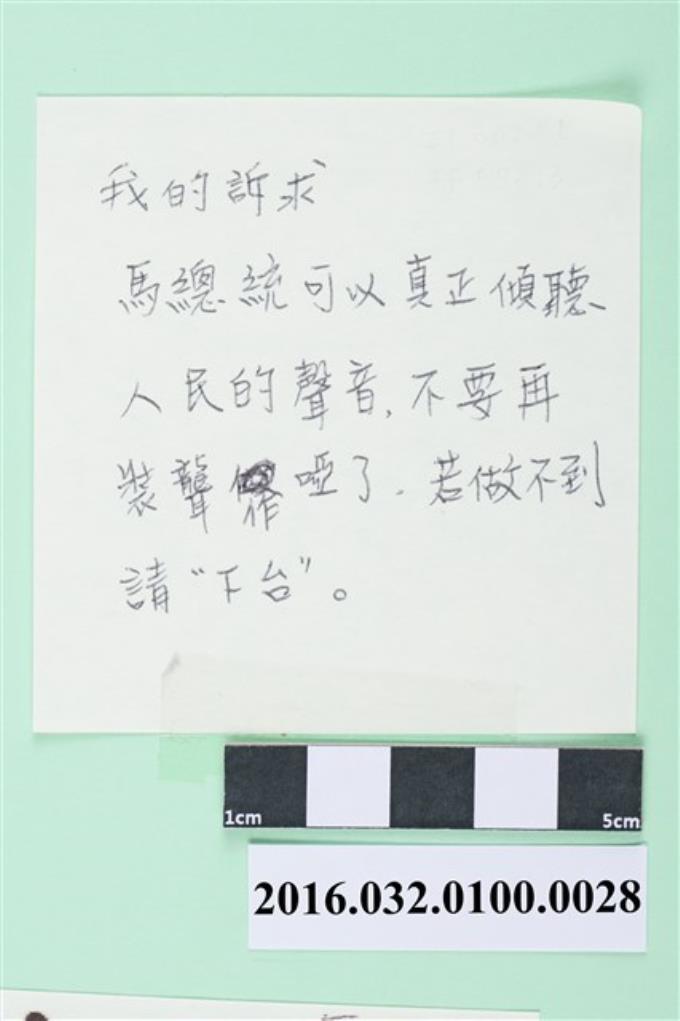 我的訴求
馬總統可以真正傾聽
人民的聲音,不要再
裝聾作啞了.若做不到
請“下台”。
1cm 5cm
2016.032.0100.0028